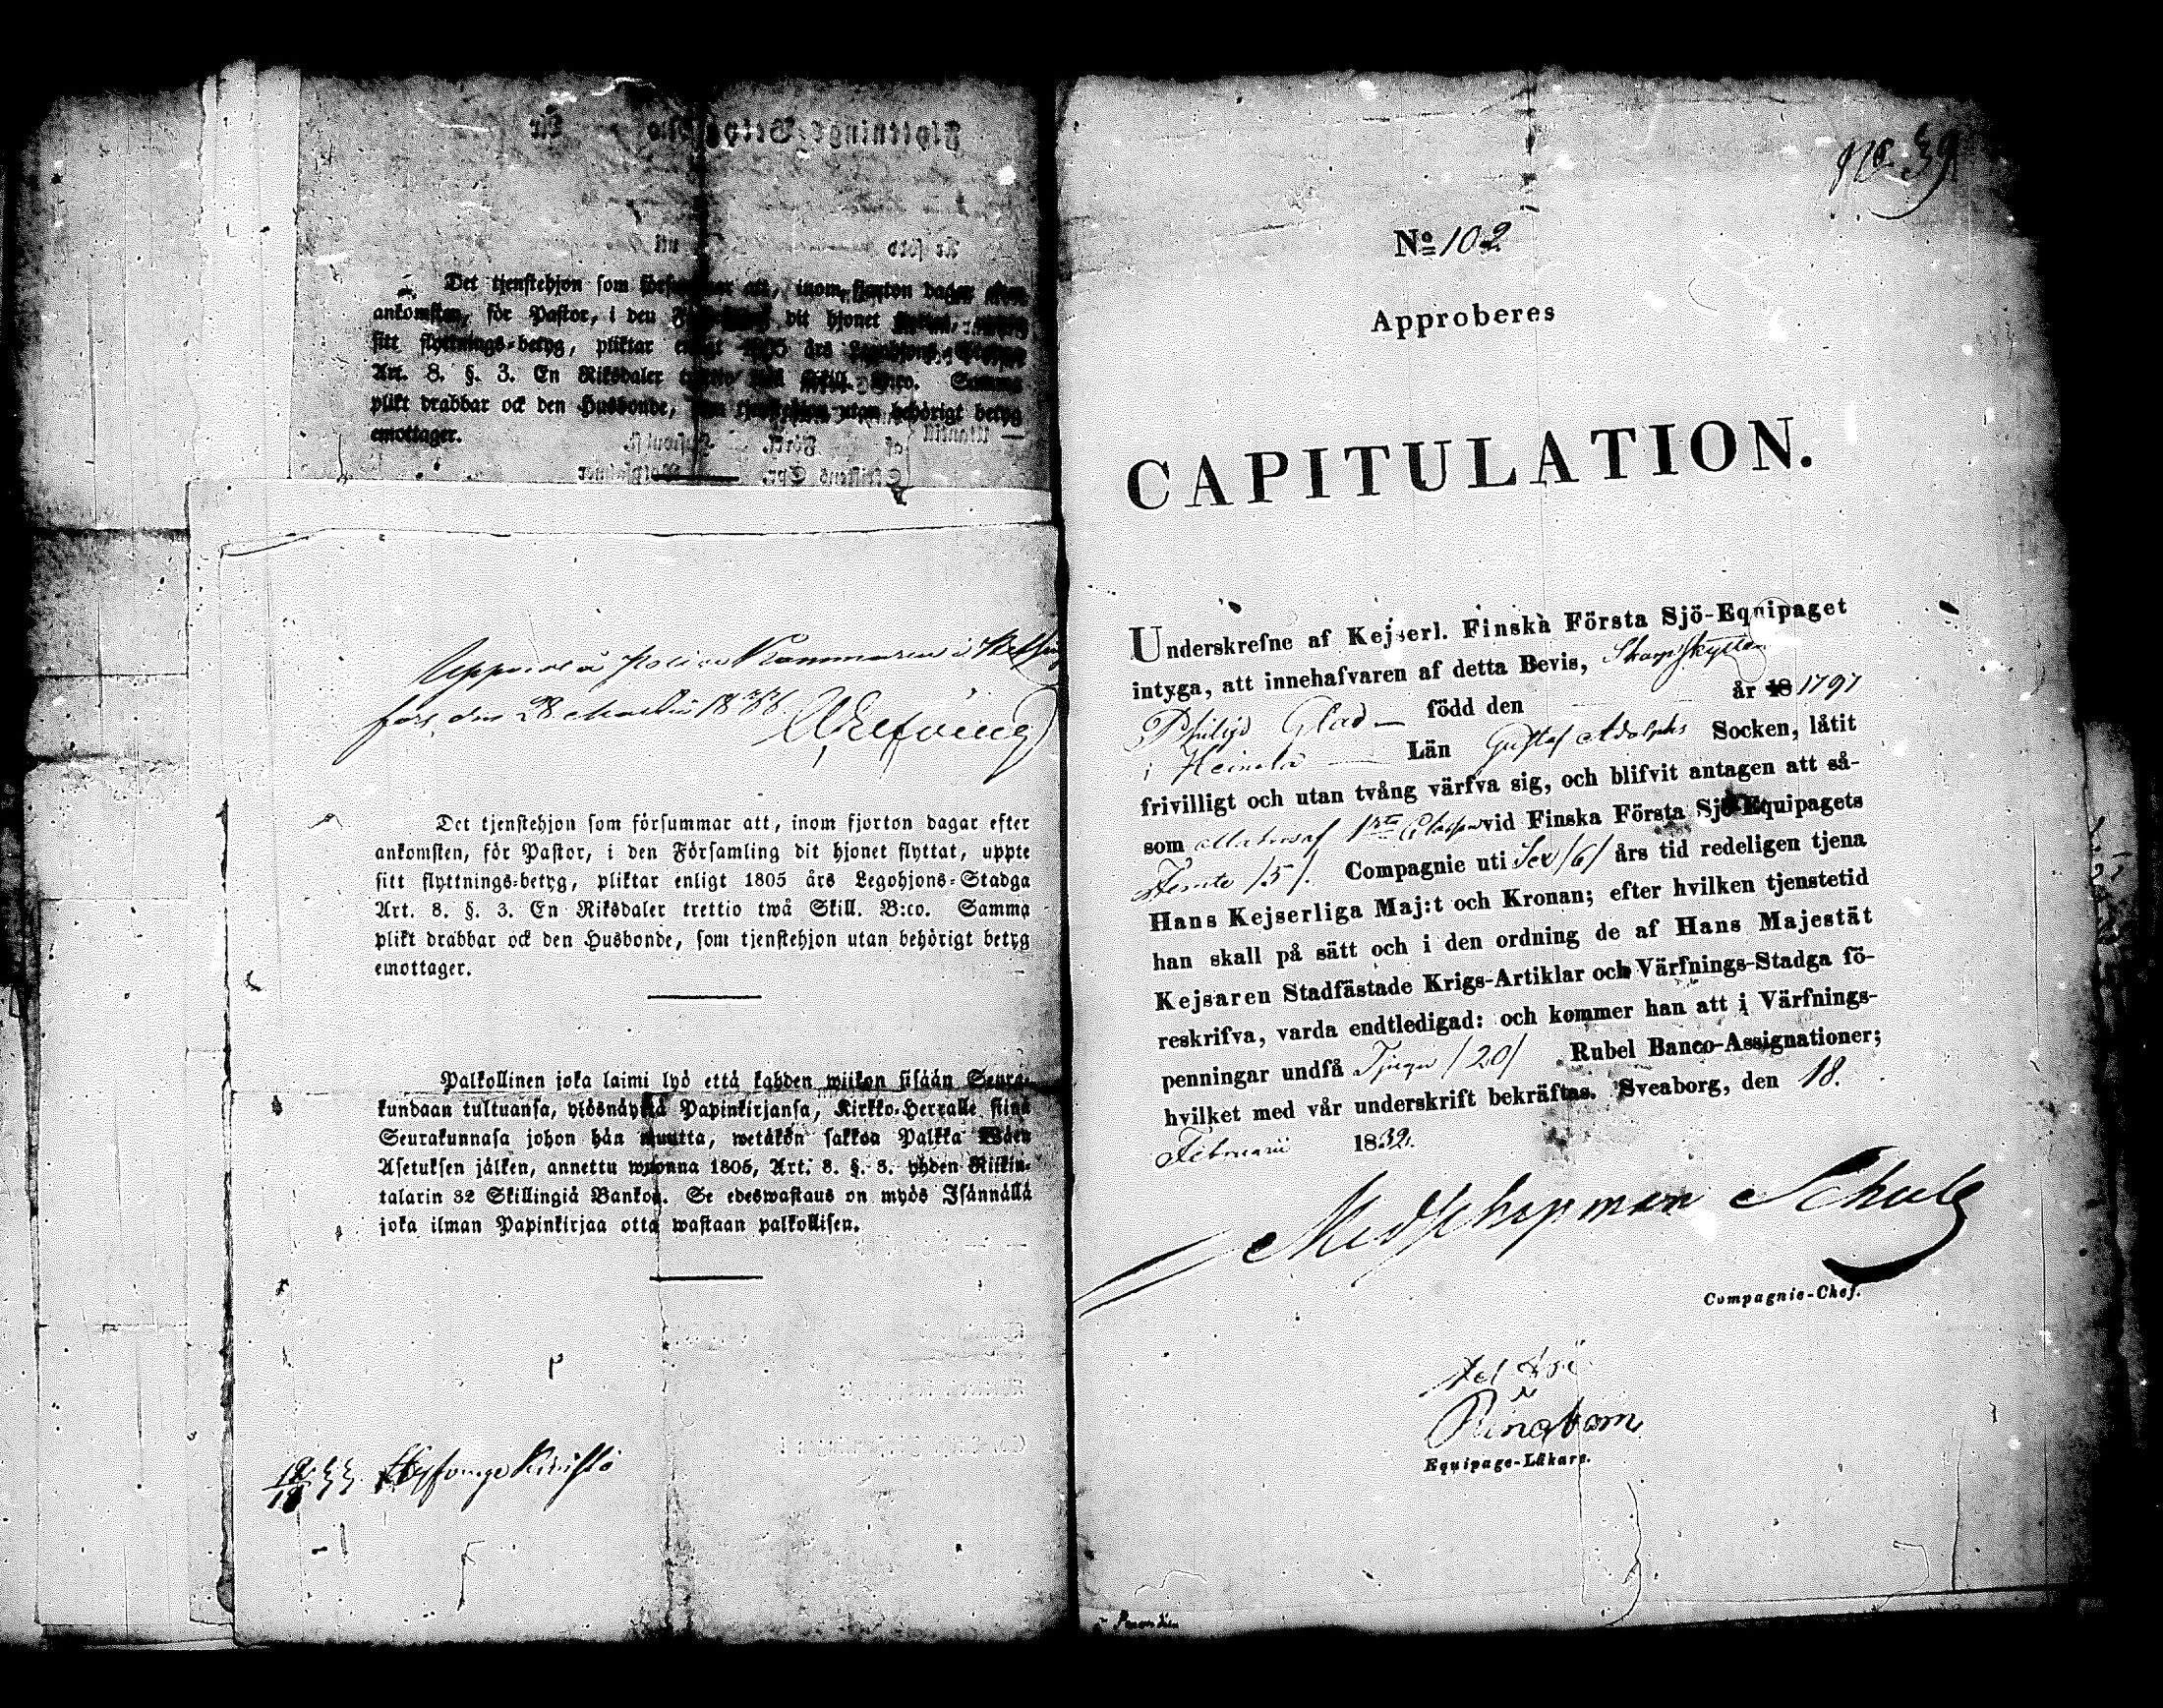 Det tjenstehjon som inom fjorton dagar
ankomsten, för Pastor, i den dit hjonet
sitt flyttnings-betyg, pliktar års
Art. 8. §. 3. En Riksdaler Skill. B:co. Samma
plikt drabbar ock den Husbonde, utan behörigt betyg
emottager.
den 28 Martii
Det tjenstehjon som försummar att, inom fjorton dagar efter
ankomsten, för Pastor, i den Församling dit hjonet flyttat, uppte
sitt flyttnings-betyg, pliktar enligt 1805 års Legohjons-Stadga
Art. 8. §. 3. En Riksdaler trettio twå Skill. B:co. Samma
plikt drabbar ock den Husbonde, som tjenstehjon utan behörigt betyg
emottager.
Palkollinen joka laimi lyö että kahden wiikon sisään Seura-
kundaan tultuansa, ylösnäyttä Papinkirjansa, Kirkko-Herralle siinä
Seurakunnasa johon hän muutta, wetäkön sakkoa Palkka Wäen
Asetuksen jälken, annettu wuonna 1805, Art. 8. §. 3. yhden Riikin-
talarin 32 Skillingiä Bankoa. Se edeswastaus on myös Isännällä
joka ilman Papinkirjaa otta wastaan palkollisen.
No. 39
No 102
Approberes
CAPITULATION.
Underskrefne af Kejserl. Finska Första Sjö-Equipaget
intyga, att innehafvaren af detta Bevis, Skarpskytten
Philip Glad född den år 18 1797
i Heinola Län Gustaf Adolphs Socken, låtit
frivilligt och utan tvång värfva sig, och blifvit antagen att så-
som Matros af 1sta Classen vid Finska Första Sjö-Equipagets
Femte /5/. Compagnie uti Sex /6/ års tid redeligen tjena
Hans Kejserliga Maj:t och Kronan; efter hvilken tjenstetid
han skall på sätt och i den ordning de af Hans Majestät
Kejsaren Stadfästade Krigs-Artiklar och Värfnings-Stadga fö-
reskrifva, varda endtledigad: och kommer han att i Värfnings-
penningar undfå Tjugu /20/ Rubel Banco-Assignationer;
hvilket med vår underskrift bekräftas. Sveaborg, den 18.
Februarii 1832.
Schulz
Compagnie-Chef.
Ringbom
Equipage-Läkare.